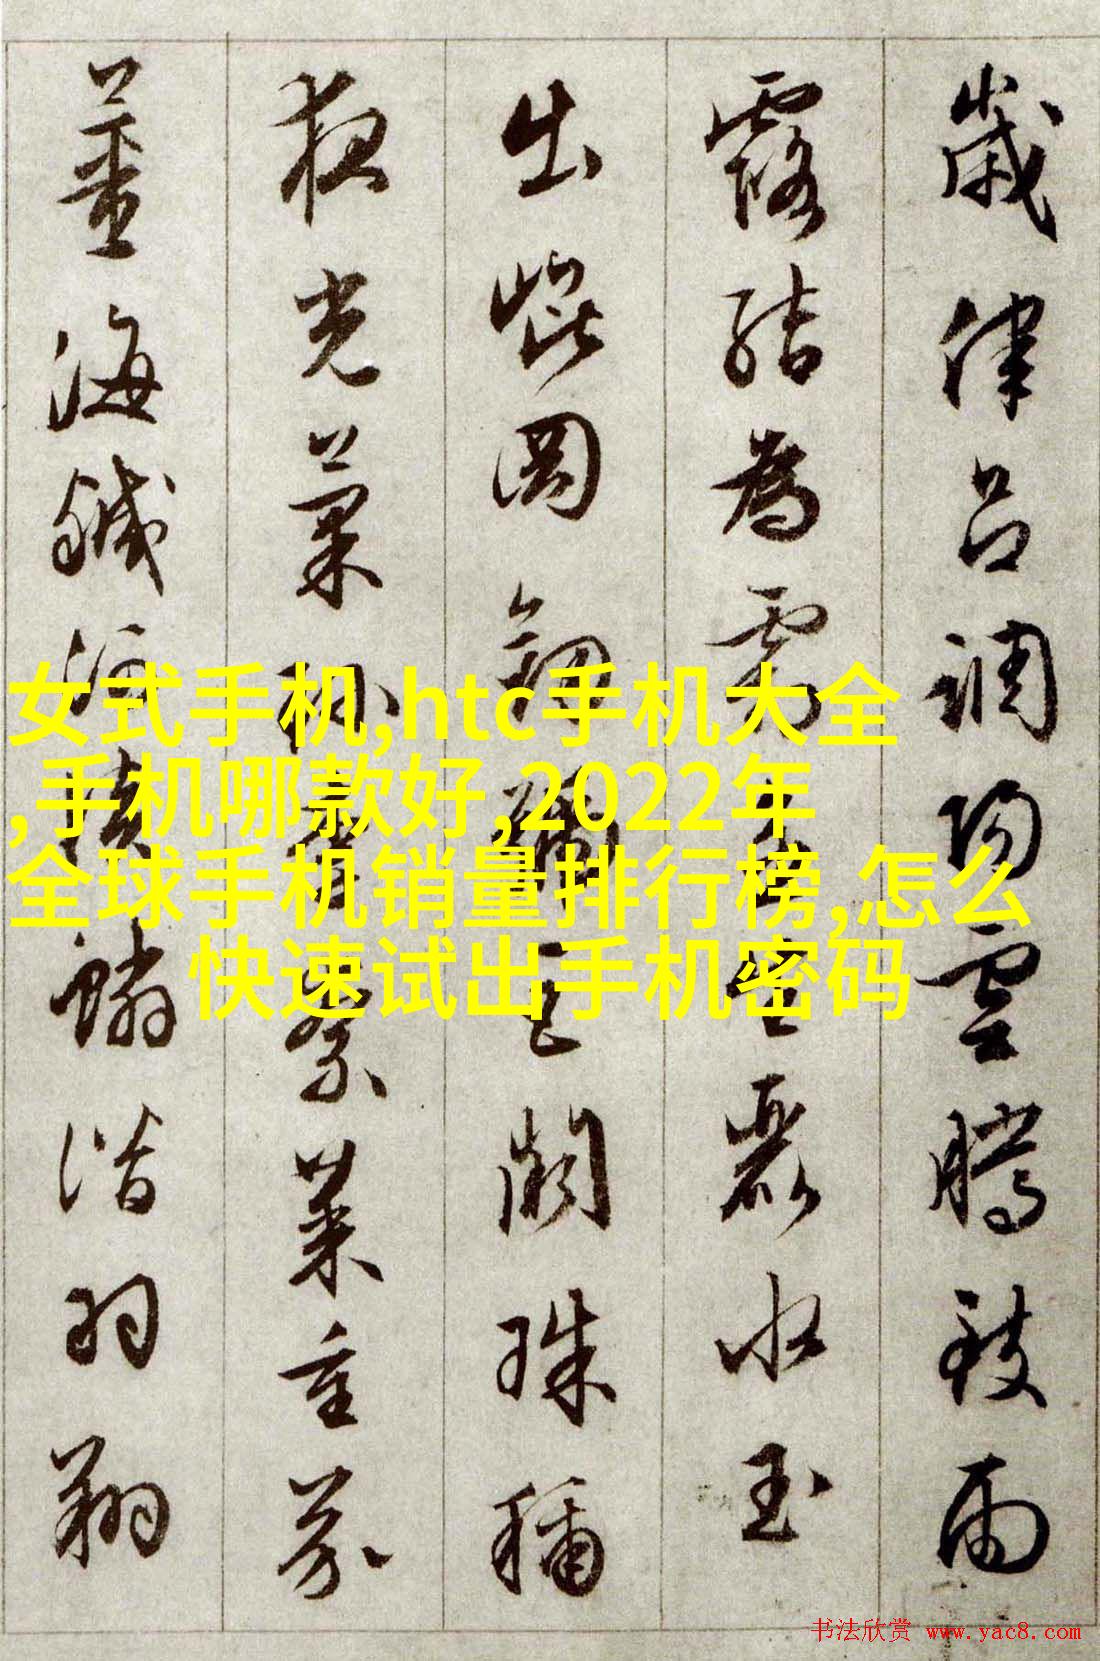 歲律呂調陽雲騰致雨
露結為霜金生麗水玉
出崐岡劒號巨闕珠稱
夜光菓珍李柰菜重芥
薑海鹹河淡鱗潛羽翔
女式手机,htc手机大全
,手机哪款好,2022年
全球手机销量排行榜,怎么
快速试出手机密码
书法欣赏 www.yac8.com